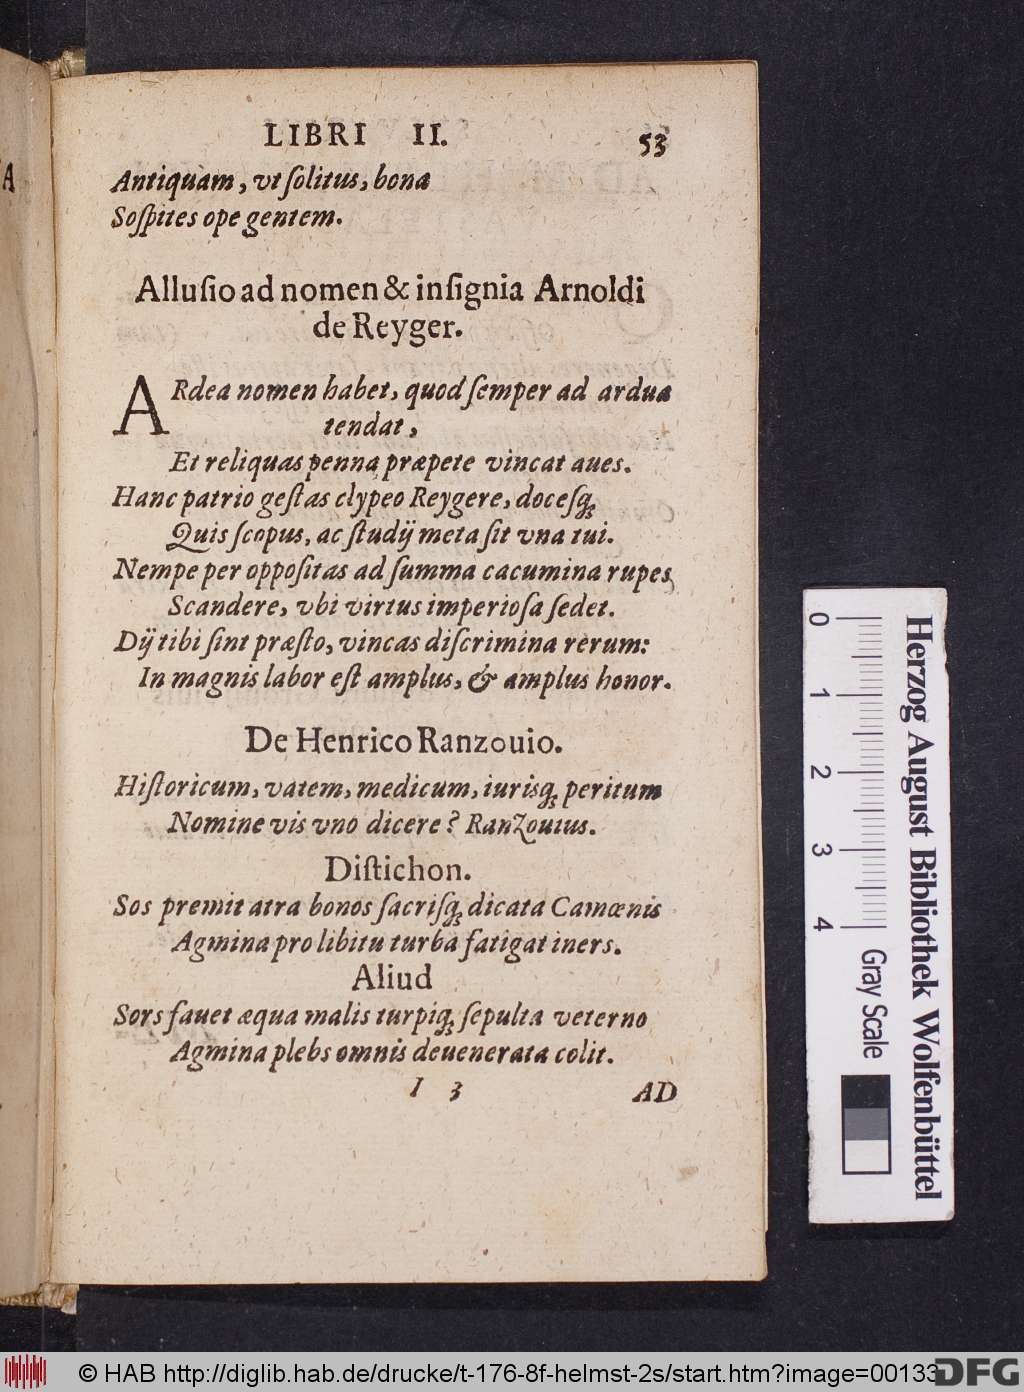 LIBRI II. 53
Antiquam, vt ſolitus, bona
Soſpites ope gentem.
Alluſio ad nomen & inſignia Arnoldi
de Reyger.
ARdea nomen habet, quod ſemper ad ardua
tendat,
Et reliquas penna præpete vincat aues.
Hanc patrio geſtas clypeo Reygere, doceſq;
Quis ſcopus, ac ſtudij meta ſit vna tui.
Nempe per oppoſitas ad ſumma cacumina rupes
Scandere, vbi virtus imperioſa ſedet.
Dij tibi ſint præſto, vincas diſcrimina rerum:
In magnis labor eſt amplus, & amplus honor.
De Henrico Ranzouio.
Hiſtoricum, vatem, medicum, iurisq; peritum
Nomine vis vno dicere? Ranzouius.
Diſtichon.
Sos premit atra bonos ſacriſq; dicata Camœnis
Agmina pro libitu turba fatigat iners.
Aliud
Sors fauet æqua malis turpiq; ſepulta veterno
Agmina plebs omnis deuenerata colit.
I 3 AD
0 1 2 3 4
Gray Scale
Herzog August Bibliothek Wolfenbüttel
© HAB http://diglib.hab.de/drucke/t-176-8f-helmst-2s/start.htm?image=00133
DFG